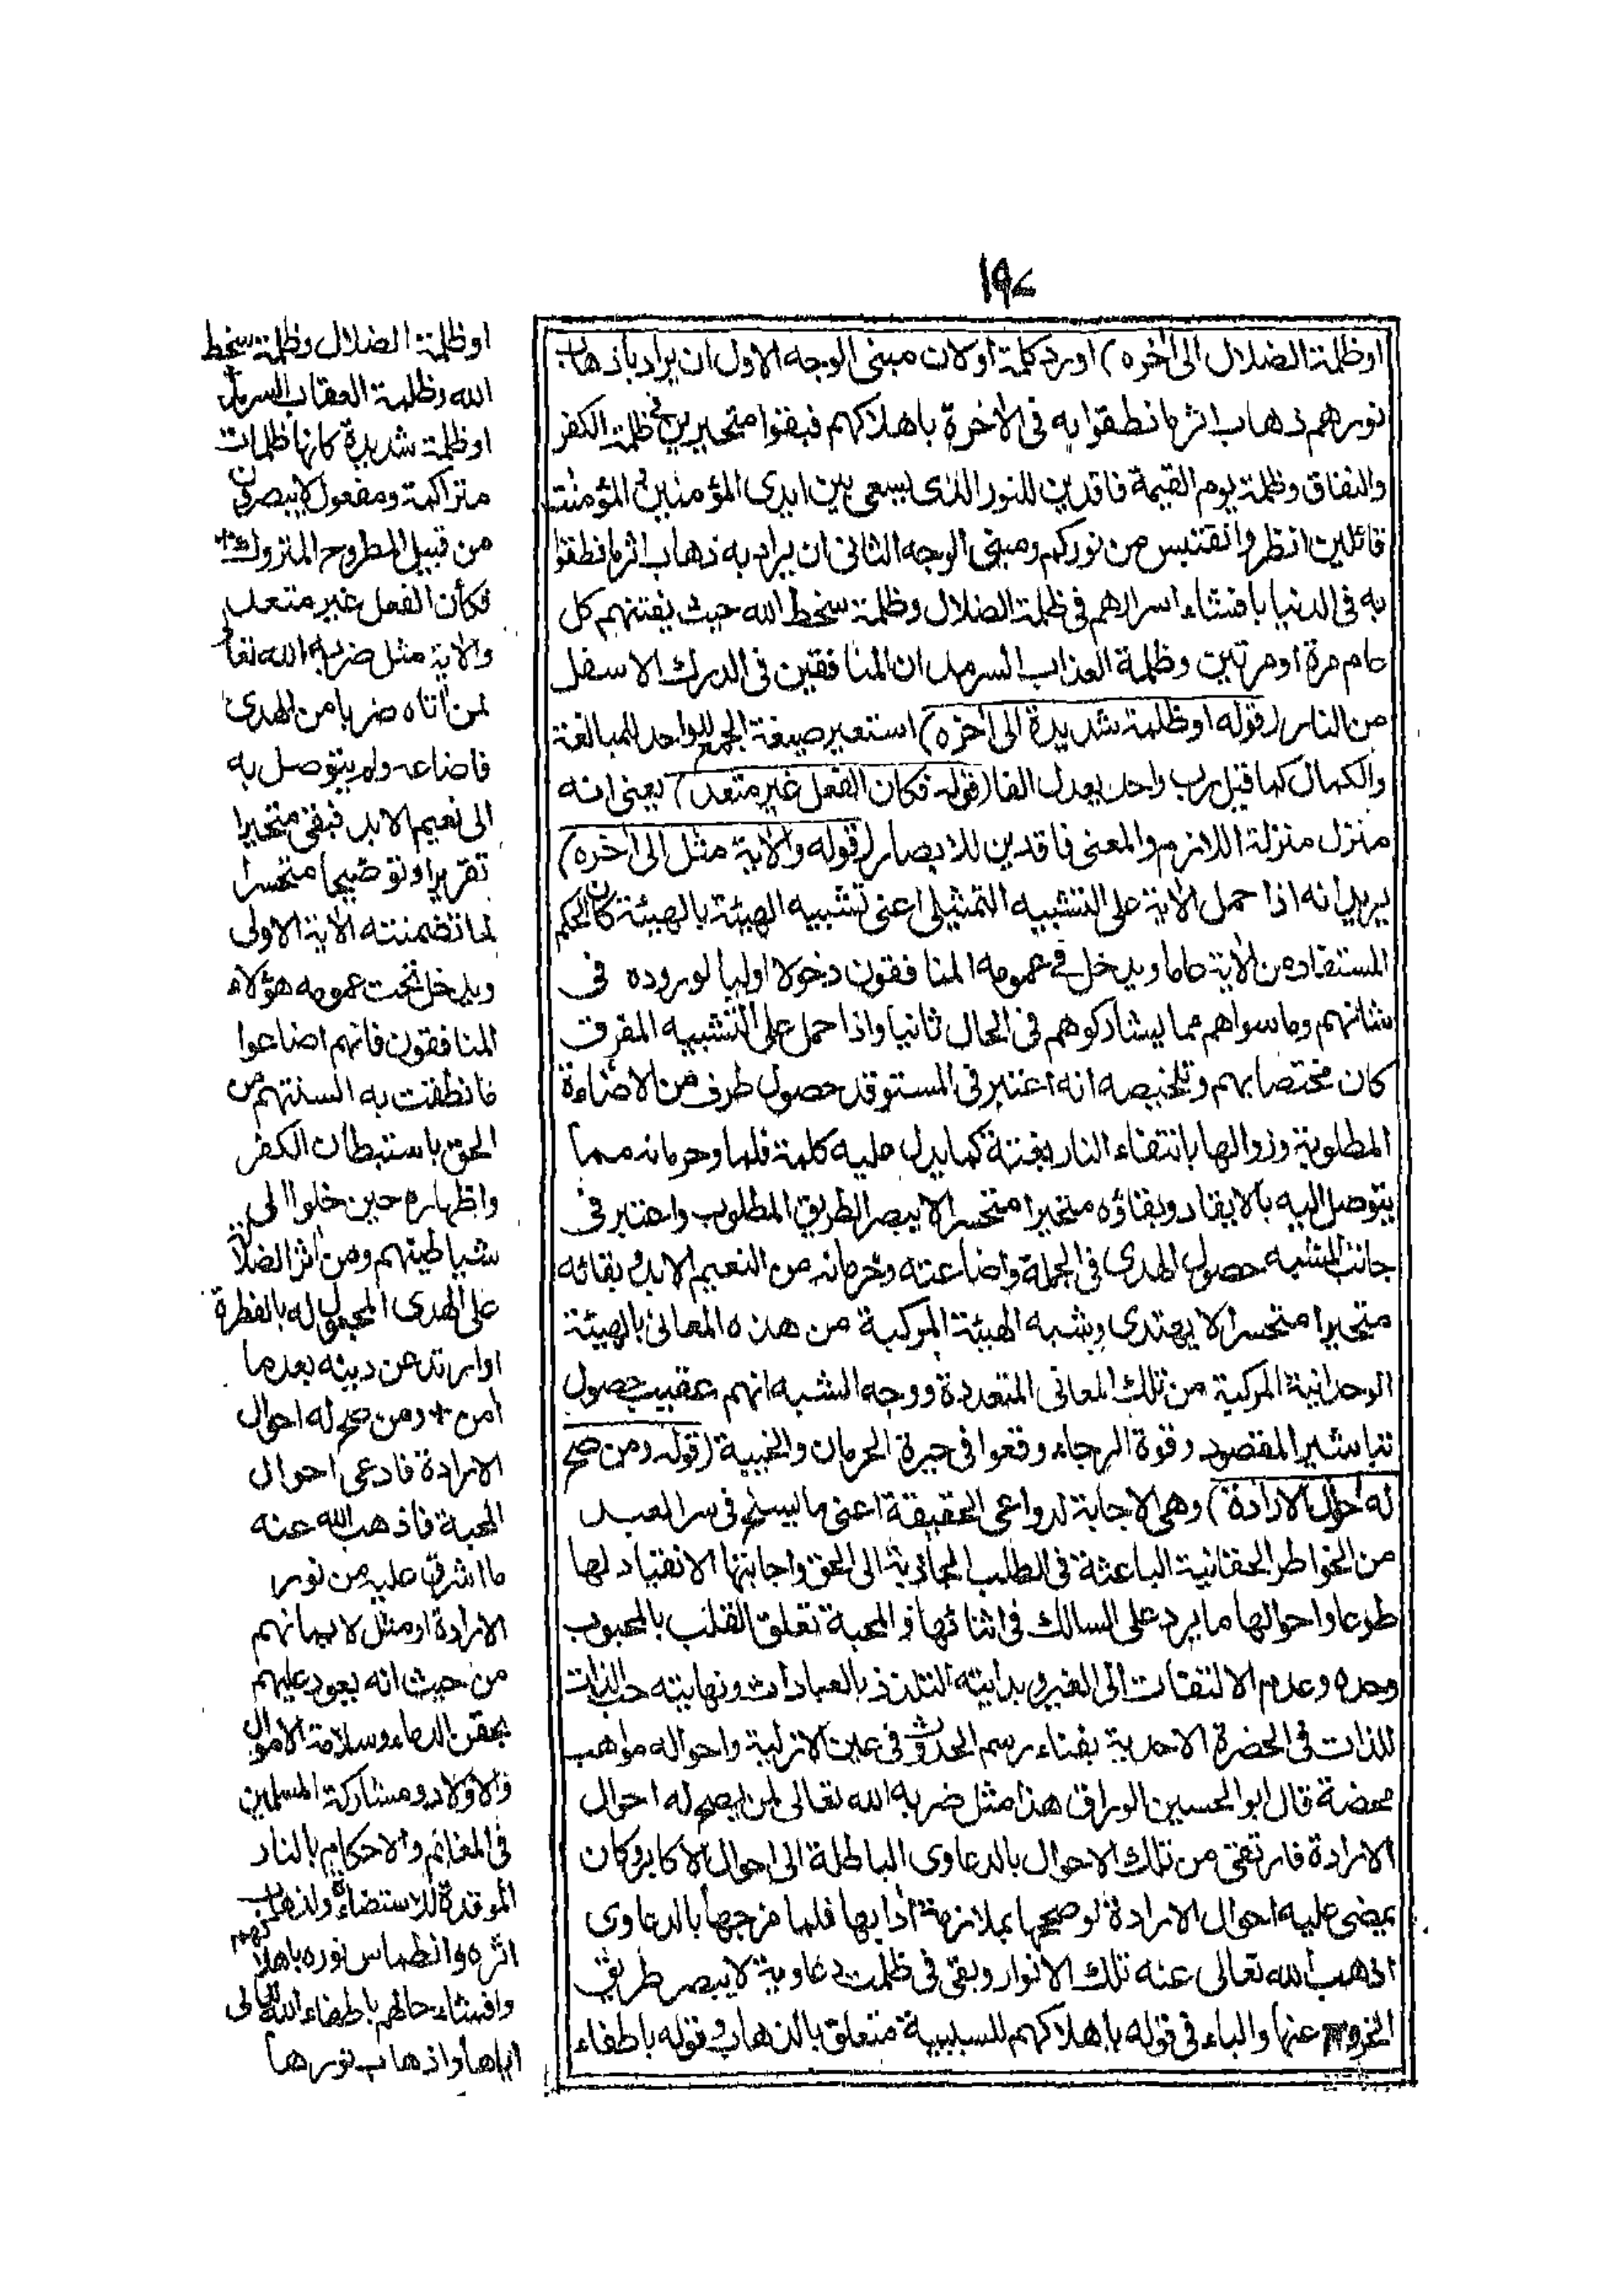 ١٩٧
او ظلمة الضلال الى اٰخره) اورد كلمة او لان مبنى الوجه الاول ان يراد باذهاب
نورهم ذهاب اثر ما نطقوا به فى الاٰخرة باهلاكهم فبقوا متحيرين فى ظلمة الكفر
والنفاق وظلمة يوم القيمة فاقدين للنور الذى يسعى بين ايدى المؤمنين والمؤمنٰت
قائلين انظرونا نقتبس من نوركم ومبنى الوجه الثانى ان يراد به ذهاب اثر ما نطقوا
به فى الدنيا بافشاء اسرارهم فى ظلمة الضلال وظلمة سخط الله حيث يفتنهم كل
عام مرة او مرتين وظلمة العذاب السرمد ان المنافقين فى الدرك الاسفل
من النار (قوله او ظلمة شديدة الى اٰخره) استعير صيغة الجمع للواحد للمبالغة
والكمال كما قيل رب واحد يعدل الفا (قوله فكان الفعل غير متعد) يعنى انه
منزل منزلة اللازم والمعنى فاقدين للابصار (قوله والاٰية مثل الى اٰخره)
يريد انه اذا حمل الاٰية على التشبيه التمثيلى اعنى تشبيه الهيئة بالهيئة كان الحكم
المستفاد من الاٰية عاما ويدخل فى عمومه المنافقون دخولا اوليا لوروده فى
شانهم وما سواهم مما يشاركوهم فى الحال ثانيا واذا حمل على التشبيه المفرق
كان مختصا بهم وتلخيصه انه اعتبر فى المستوقد حصول طرف من الاضاءة
المطلوبة وزوالها بانتفاء النار بغتة كما يدل عليه كلمة فلما وحرمانه مما
يتوصل اليه بالايقاد وبقاؤه متحيرا متحسرا لا يبصر الطريق المطلوب واعتبر فى
جانب المشبه حصول الهدى فى الجملة واضاعته وحرمانه من النعيم الابد وبقائه
متحيرا متحسرا لا يهتدى ويشبه الهيئة المركبة من هذه المعانى بالهيئة
الوحدانية المركبة من تلك المعانى المتعددة ووجه الشبه انهم عقيب حصول
تباشير المقصود وقوة الرجاء وقعوا فى حيرة الحرمان والخيبة (قوله ومن صح
له احوال الارادة) وهى الاجابة لدواعى الحقيقة اعنى ما يسنح فى سر العبد
من الخواطر الحقانية الباعثة فى الطلب الجاذبة الى الحق واجابتها الانقياد لها
طوعا واحوالها ما يرد على السالك فى اثنائها والمحبة تعلق القلب بالمحبوب
وحده وعدم الالتفات الى الغير وبدايته التلذذ بالعبادات ونهايته حب الذات
للذات فى الحضرة الاحدية بفناء رسم الحدوث فى عين الازلية واحواله مواهب
محضة قال ابو الحسين الوراق هذا مثل ضربه الله تعالى لمن لم يصح له احوال
الارادة فارتقى من تلك الاحوال بالدعاوى الباطلة الى احوال الاكابر وكان
يمضى عليه احوال الارادة لو صححها بملازمة اٰدابها فلما مزجها بالدعاوى
اذهب الله تعالى عنه تلك الانوار وبقى فى ظلمت دعاويه لا يبصر طريق
الخروج عنها والباء فى قوله باهلاكهم للسببية متعلق بالذهاب وقوله باطفاء
او ظلمة الضلال وظلمة سخط
الله وظلمة العقاب السرمد
او ظلمة شديدة كانها ظلمات
متراكمة ومفعول لا يبصرون
من قبيل المطروح المتروك
فكأن الفعل غير متعد
والاٰية مثل ضربه الله تعا
لمن اٰتاه ضربا من الهدى
فاضاعه ولم يتوصل به
الى نعيم الابد فبقى متحيرا
متحسرا تقريرا وتوضيحا
لما تضمنته الاٰية الاولى
ويدخل تحت عمومه هؤلاء
المنافقون فانهم اضاعوا
ما نطقت به السنتهم من
الحق باستبطان الكفر
واظهاره حين خلوا الى
شياطينهم ومن اٰثر الضلالة
على الهدى المجعول له بالفطرة
او ارتد عن دينه بعد ما
اٰمن + ومن صح له احوال
الارادة فادعى احوال
المحبة فاذهب الله عنه
ما اشرق عليه من نور
الارادة او مثل لايمانهم
من حيث انه يعود عليهم
بحقن الدماء وسلامة الاموال
والاولاد ومشاركة المسلمين
فى المغانم والاحكام بالنار
الموقدة للاستضاءة ولذهاب
اثره وانطماس نوره باهلاكهم
وافشاء حالهم باطفاء الله تعالى
اياها واذهاب نورها